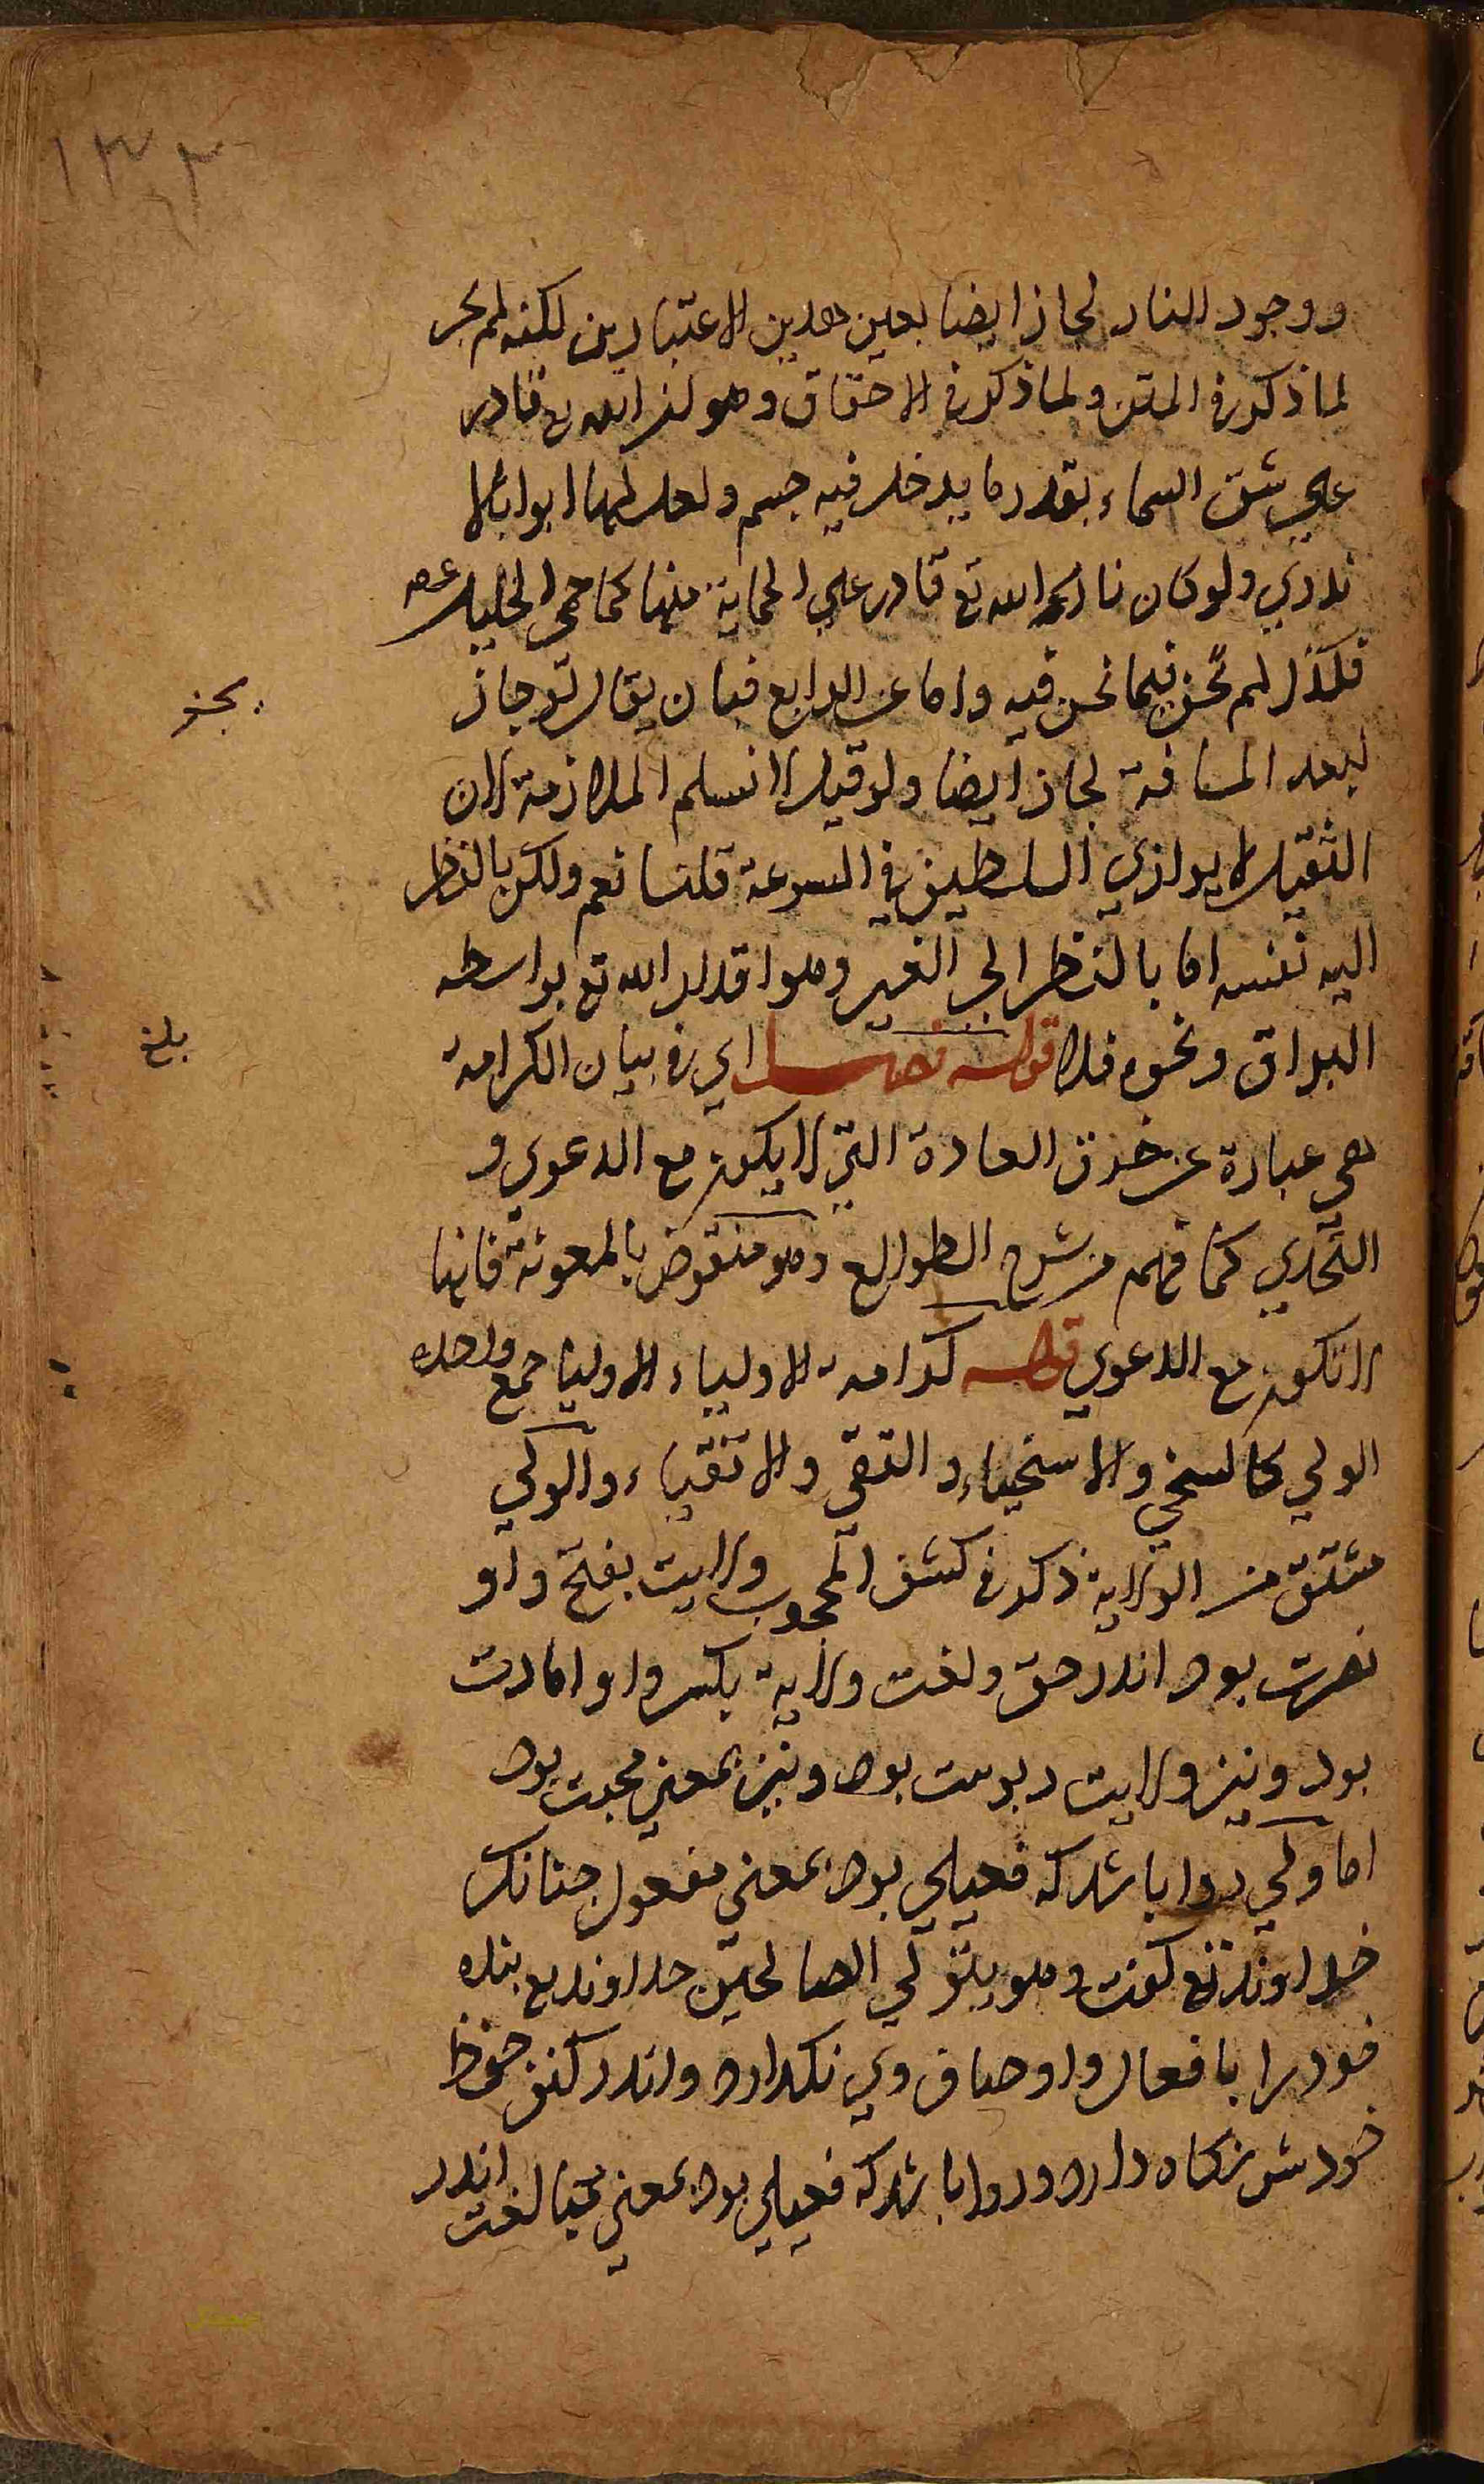 ١٣٣
ووجود النار لجاز ايضا بعين هذين الاعتبارين لكنه لم يجز
لما ذكر في المتن ولما ذكر في الاحقاق وهو ان الله تع قادر
علي شق السماء بقدر ما يدخل فيه جسم ولعل لها ابوابا لا
ندري ولو كان نارا الله تع قادر علي الحماية منها كما حمي الخليل عم
فلذا لم يجز فيما نحن فيه واما عن الرابع فبان يقال لو جاز
لبعد المسافة لجاز ايضا ولو قيل لا نسلم الملازمة لان
الثقيل لا يوازي السلطين في السرعة قلنا نعم ولكن بالنظر
اليه نفسه اما بالنظر الي الغير وهو اقدار الله تع بواسطه
البراق ونحوه فلا قوله فصل اي في بيان الكرامة
هي عبارة عن خرق العادة التي لا يكون مع الدعوي و
التحدي كما فهم من شرح الطوالع وهو منقوض بالمعونة فانها
لا تكون مع الدعوي قوله كرامة الاولياء الاوليا جمع واحده
الولي كالسخي والاسخياء والتقي والاتقياء والولي
مشتق من الولاية ذكر في كشف المحجوب ولايت بفتح واو
نصرت بود اندر حق ولغت ولاية بكسر واو امارت
بود ونيز ولايت ربوبيت بود ونيز بمعني محبت بود
اما ولي روا باشد كه فعيلي بود بمعني مفعول جنانك
خداوند تع كفت وهو يتولي الصالحين خداوند تع بنده
خود را بافعال واوصاف وي نكدارد واندر كنف حفظ
خودش نكاه دارد وروا باشد كه فعيلي بود بمعني مبالغت اندر
يجز
بلغ